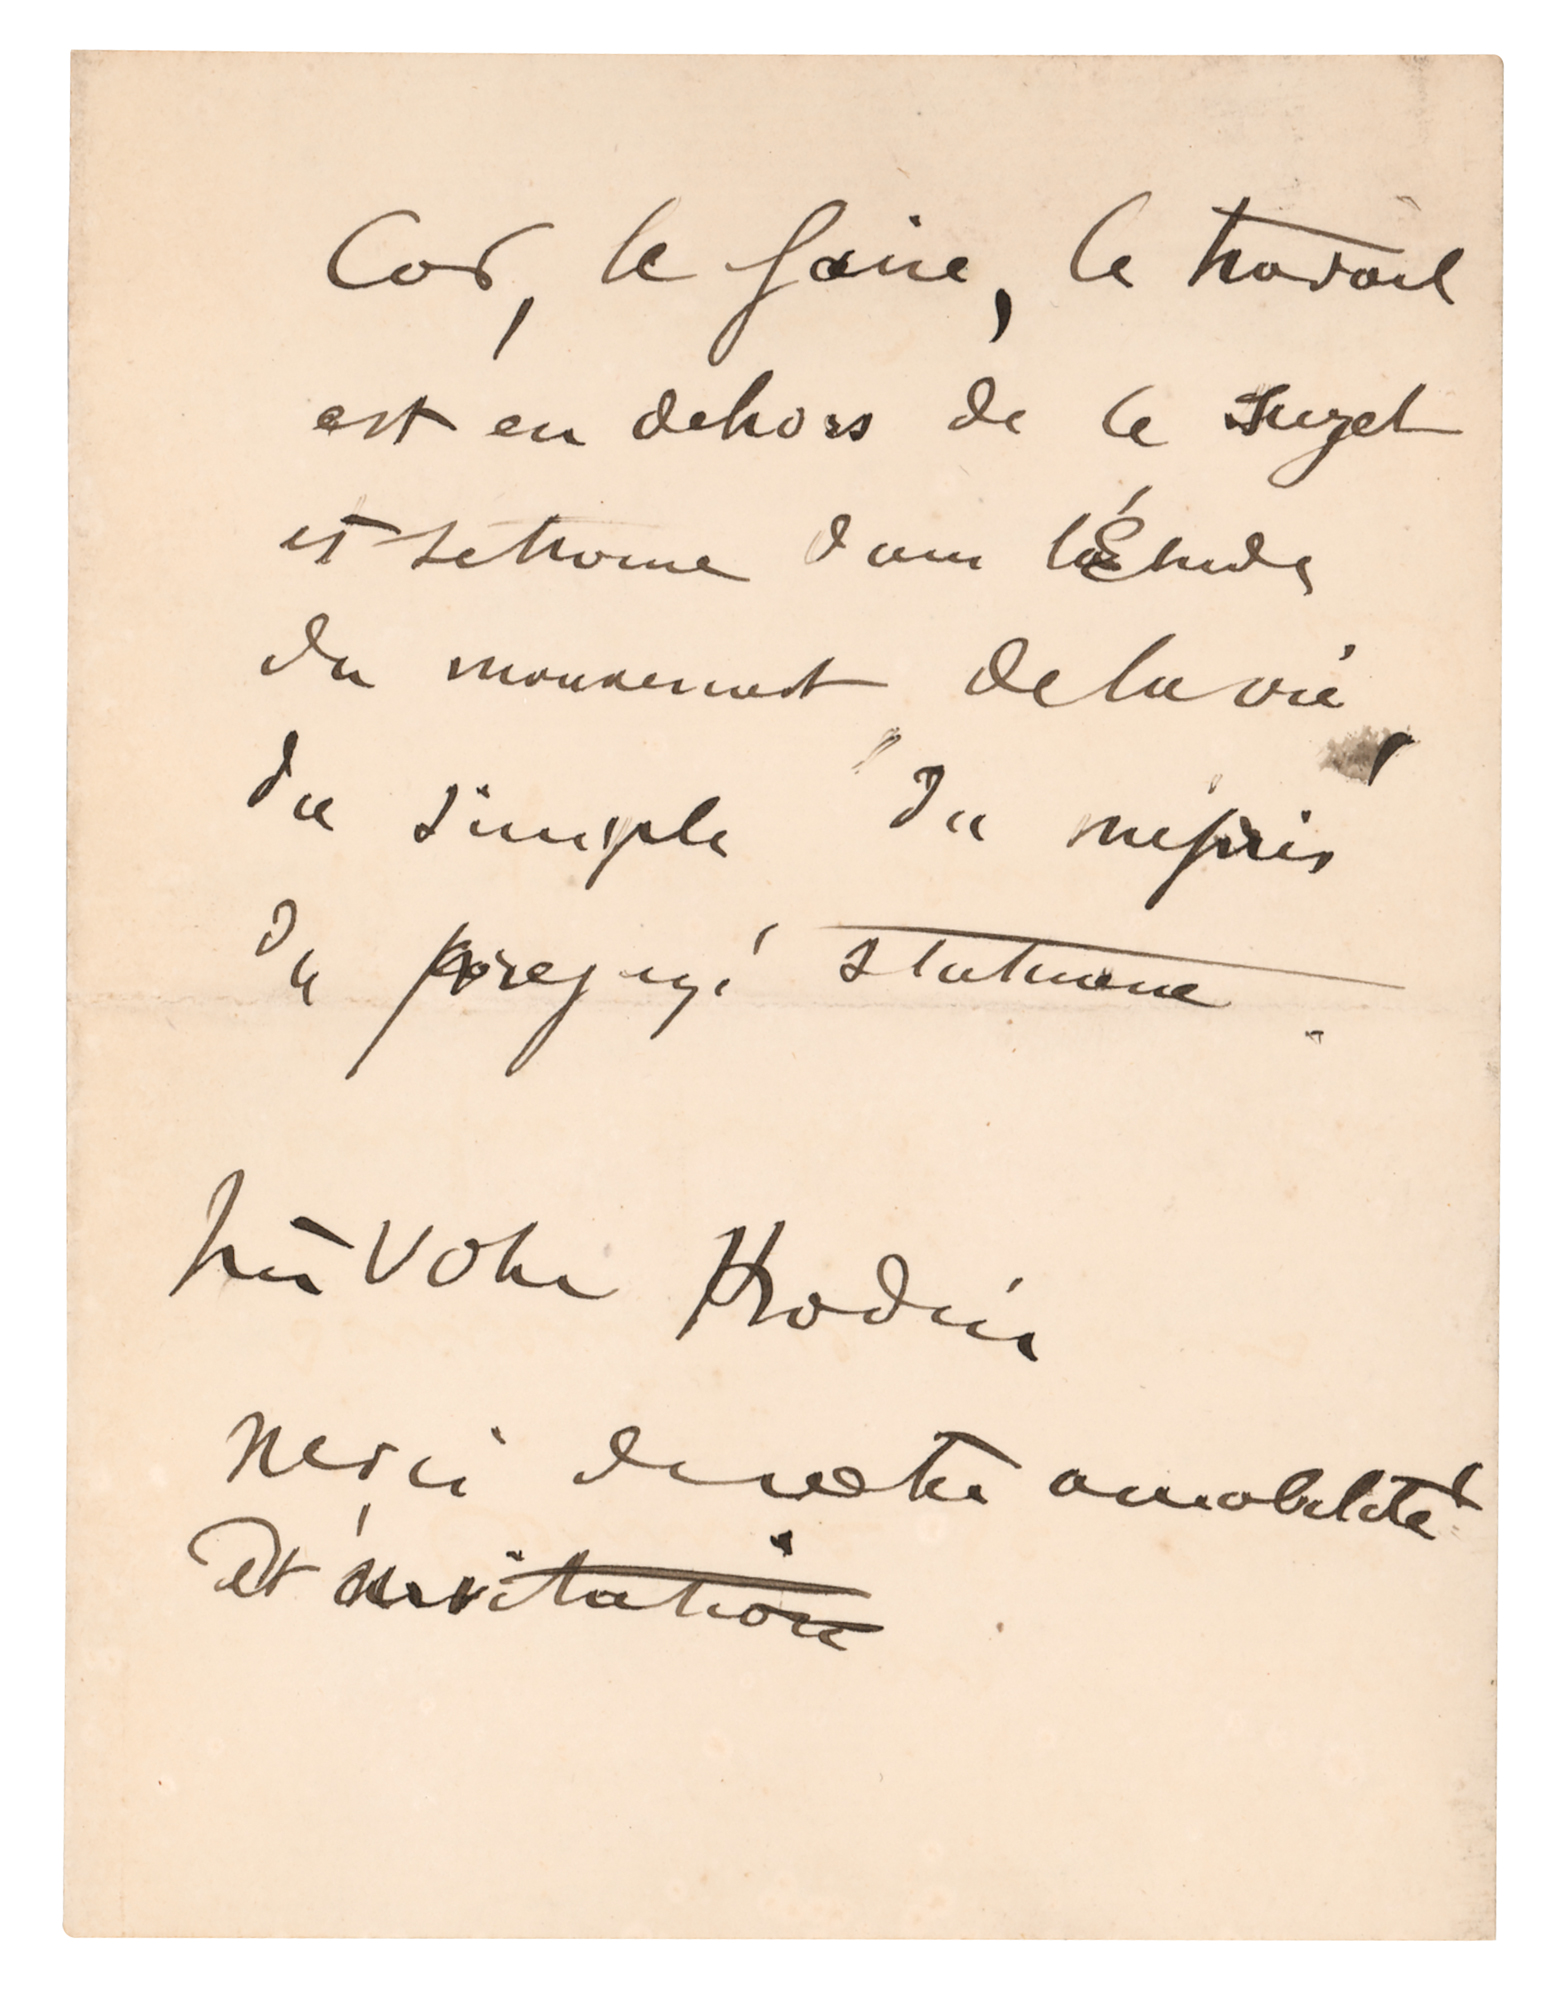 Car, le faire, le travail
est en dehors de le sujet
et se trouve dans l'Étude
du mouvement de la vie,
du simple du mépris
du prejugé statuaire.
tout votre ARodin
Merci de votre amabilité
Et invitation